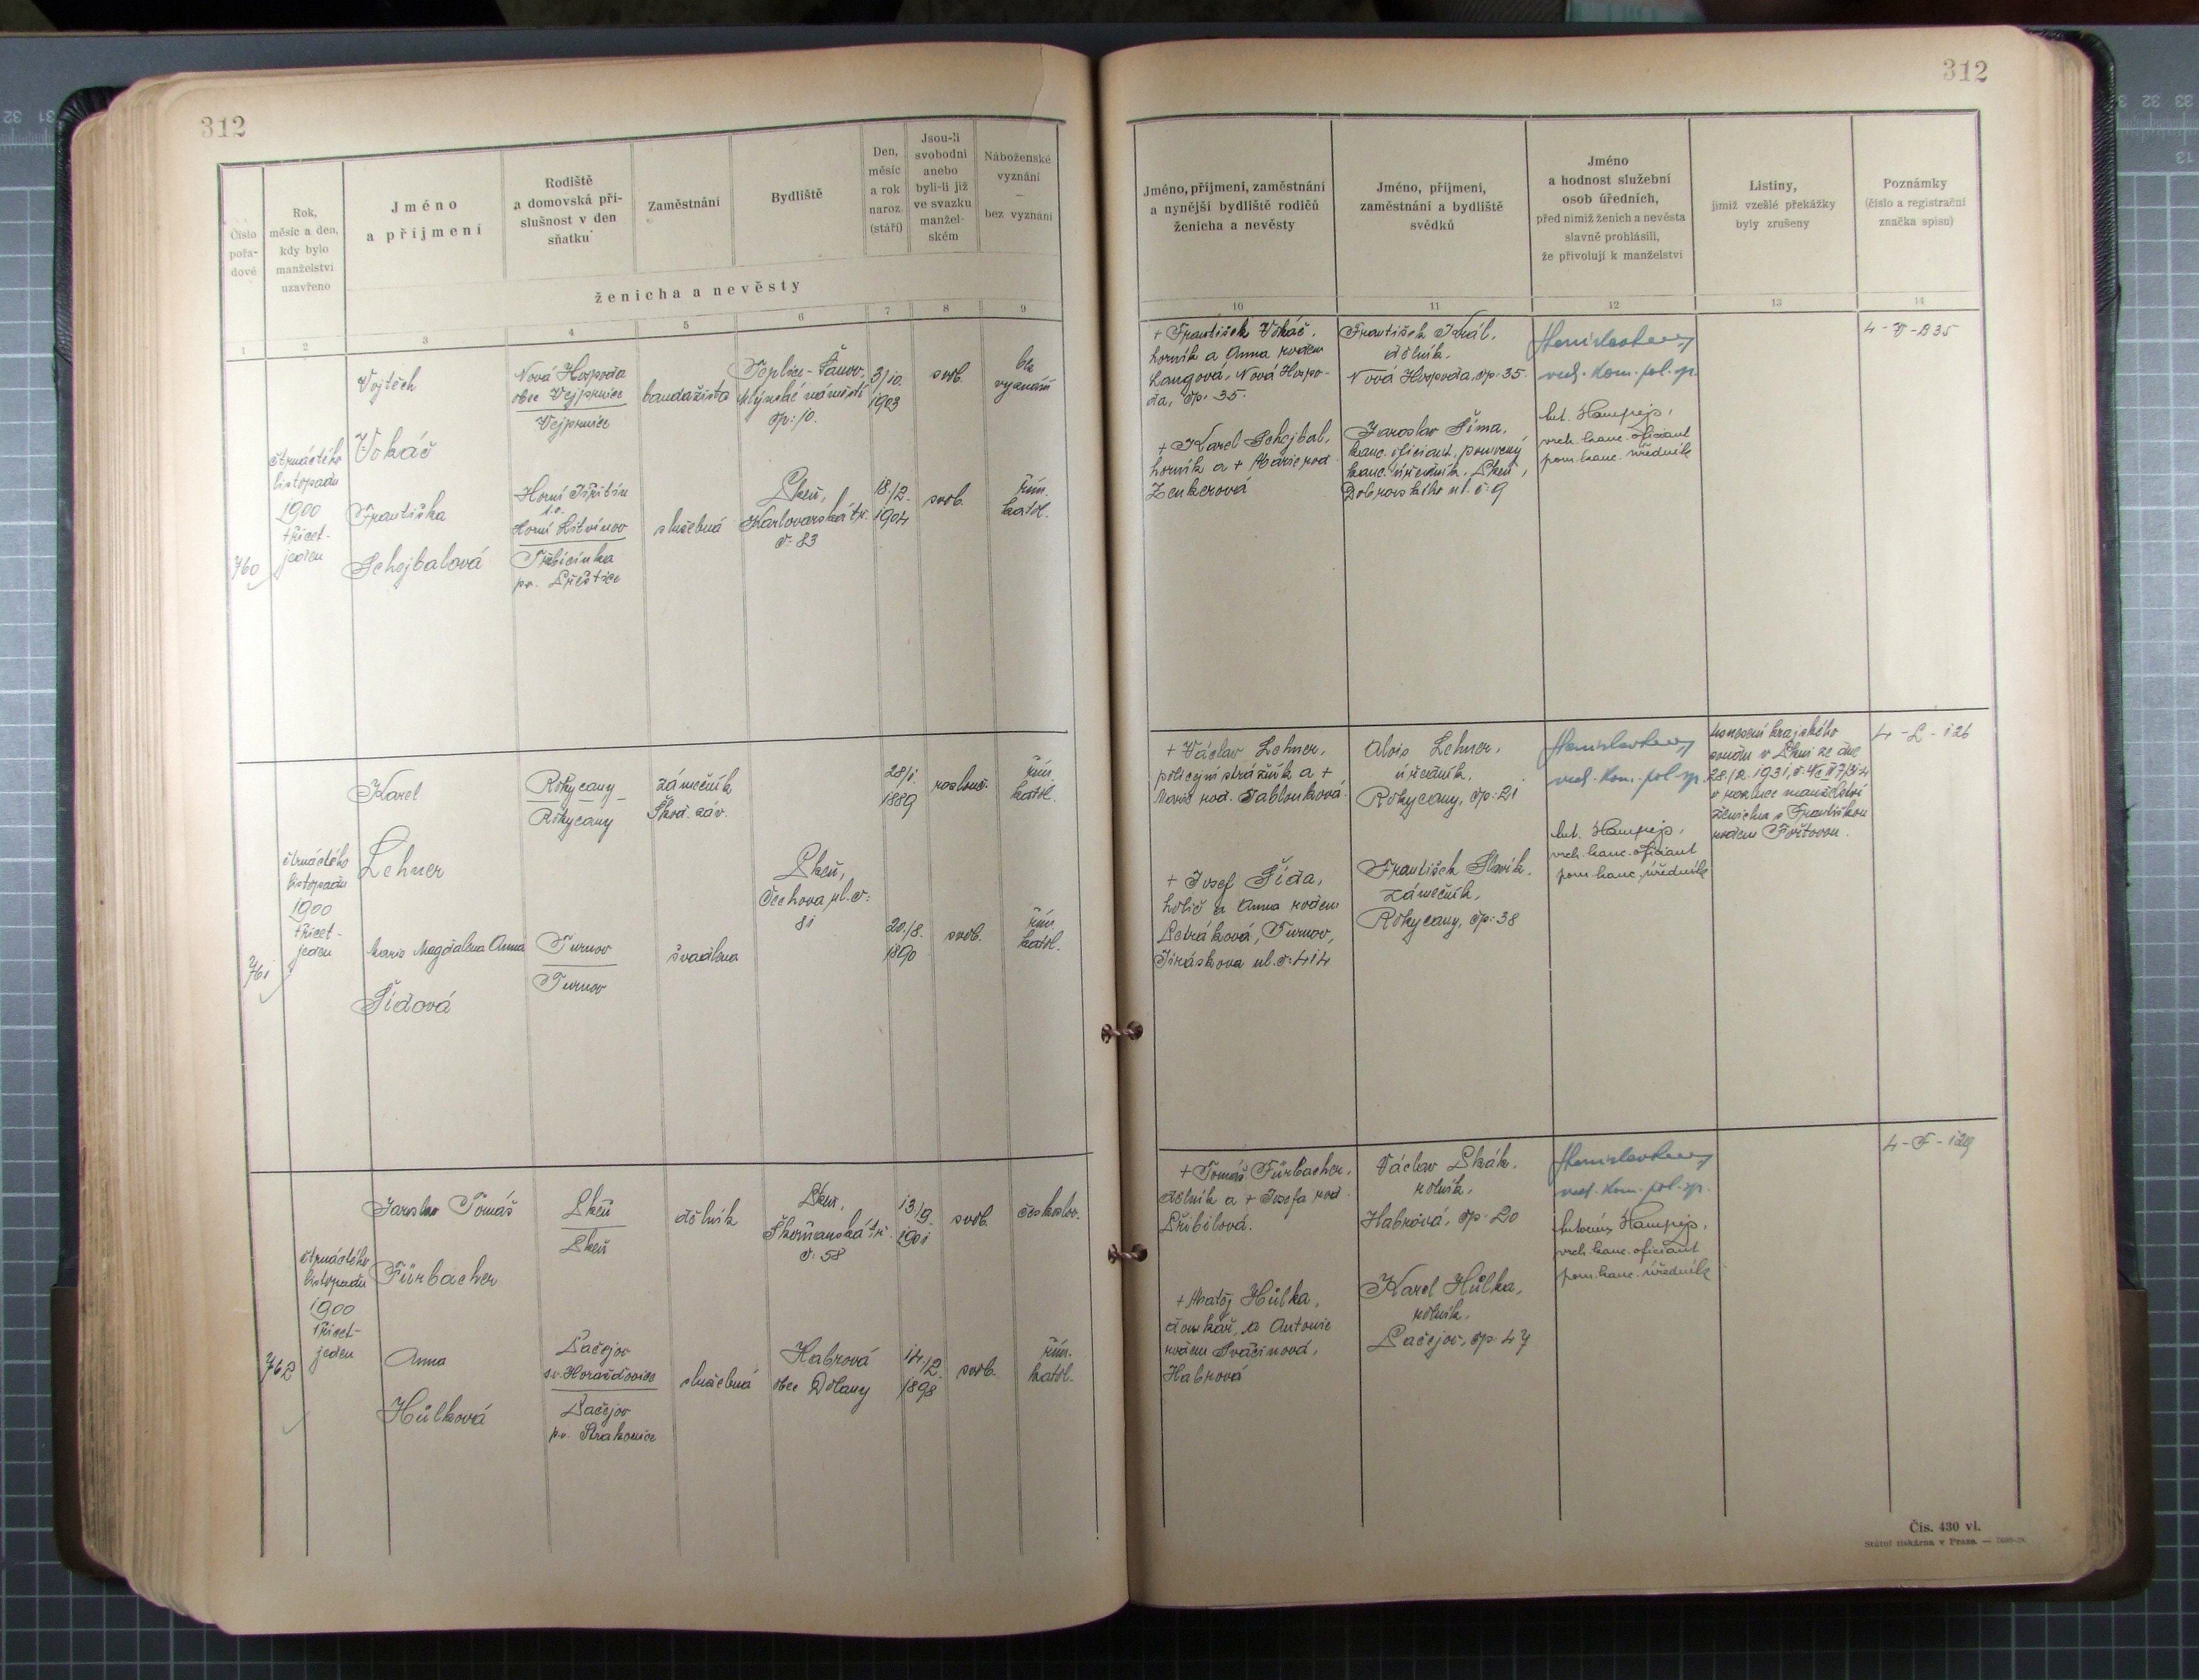 312
312
Číslo pořa-dové
Rok, měsíc a den, kdy bylo manželství uzavřeno
Jméno a příjmení
Rodiště a domovská pří-slušnost v den sňatku
Zaměstnání
Bydliště
Den, měsíc a rok naroz. (stáří)
Jsou-li svobodni anebo byli-li již ve svazku manžel-ském
Náboženské vyznání — bez vyznání
ženicha a nevěsty
1 2 3 4 5 6 7 8 9
Jméno, příjmení, zaměstnání a nynější bydliště rodičů ženicha a nevěsty
Jméno, příjmení, zaměstnání a bydliště svědků
Jméno a hodnost služební osob úředních, před nimiž ženich a nevěsta slavně prohlásili, že přivolují k manželství
Listiny, jimiž vzešlé překážky byly zrušeny
Poznámky (číslo a registrační značka spisu)
10 11 12 13 14
760
čtrnáctého
listopadu
1900
třicet-
jeden
Vojtěch
Vokáč
Nová Hospoda
obec Vejprnice
Vejprnice
bandažista
Teplice-Šanov,
Mlýnské náměstí
čp: 10.
3/10.
1903
svob.
bez
vyznání
Františka
Schejbalová
Horní Jiřetín
s.o.
Horní Litvínov
pv. Přeštice
služebná
Plzeň,
Karlovarská tř.
č: 83
18/2.
1904
svob.
řím.
katol.
+ František Vokáč,
horník a Anna rodem
Langová, Nová Hospo-
da, čp. 35.
+ Karel Schejbal,
horník a + Marie rod.
Zenkerová
František Král,
dělník,
Nová Hospoda, čp. 35.
Jaroslav Šíma,
kanc. oficiant, pomocný
kanc. úředník, Plzeň,
Dobrovského ul. č: 9
vrch. kom. pol. sp.
vrch. kanc. oficiant
pom. kanc. úředník
761
čtrnáctého
listopadu
1900
třicet-
jeden
Karel
Lehner
Rokycany
Rokycany
zámečník
Škod. záv.
28/1.
1889
rozlouč.
řím.
katol.
Plzeň,
Čechova ul. č:
81
Marie Magdalena Anna
Šídová
Turnov
Turnov
švadlena
20/8.
1890
svob.
řím.
katol.
+ Václav Lehner,
policejní strážník a +
Marie rod. Jablonková.
+ Josef Šída,
holič a Anna rodem
Turnov,
Jiráskova ul. č: 414
Alois Lehner,
úředník,
Rokycany, čp: 21
František Slavík,
zámečník,
Rokycany, čp: 38
vrch. kom. pol. sp.
vrch. kanc. oficiant
pom. kanc. úředník
Usnesení krajského
soudu v Plzni ze dne
o rozluce manželství
ženicha s Františkou
rodem
4 - L - 126
762
čtrnáctého
listopadu
1900
třicet-
jeden
Jaroslav Tomáš
Fürbacher
Plzeň
Plzeň
dělník
Plzeň,
Škvrňanská tř.
č: 58
13/9.
1901
svob.
českoslov.
Anna
Hůlková
Pačejov
s.o. Horažďovice
Pačejov
pv. Strakonice
služebná
Habrová
obec Dolany
14/2.
1898
svob.
řím.
katol.
+ Tomáš Fürbacher,
dělník a + Josefa rod.
Přibilová.
+ Matěj Hůlka,
domkář, a Antonie
rodem Svačinová,
Habrová
Václav
rolník,
Habrová, čp. 20
Karel Hůlka,
rolník,
Pačejov, čp. 47
vrch. kom. pol. sp.
Antonín
vrch. kanc. oficiant
pom. kanc. úředník
4 - F - 129
Čís. 430 vl.
Státní tiskárna v Praze